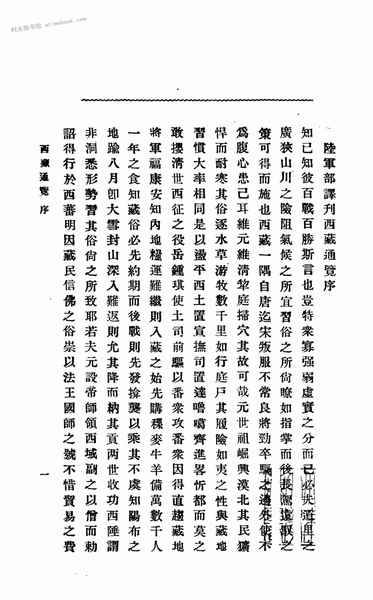 陸軍部譯刊西藏通覽序
知己知彼百戰百勝斯言也豈特衆寡强弱虛實之分而已必天道里之
廣狹山川之險阻氣候之所宜習俗之所尙瞭如指掌而後長駕遠馭之
策可得而施也西藏一隅自唐迄宋叛服不常良將勁卒驅之邊外使不
爲腹心患已耳維元維清犂庭掃穴其故可哉元世祖崛興漠北其民獷
悍而耐寒其俗逐水草游牧數千里如行庭戶其履險如夷之性與藏地
習慣大率相同是以盪平西土置宣撫司置達嚕噶齊進畧忻都而莫之
敢攖淸世西征之役岳鍾琪使土司前驅以番衆攻番衆因得直趨藏地
將軍福康安知內地糧運難繼則入藏之始先購稞麥牛羊備萬數千人
一年之食知俗必先約期而後戰則先發掩襲以乘其不虞知陽布之
地踰八月卽大雪封山深入難返則允其降而納其貢兩世收功西陲謂
非洞悉形勢習其俗尙之所致耶若夫元設帝師領西域副之以僧而勅
詔得行於西蕃明因藏民信佛之俗崇以法王國師之號不惜貿易之費
西藏通覽 序
一